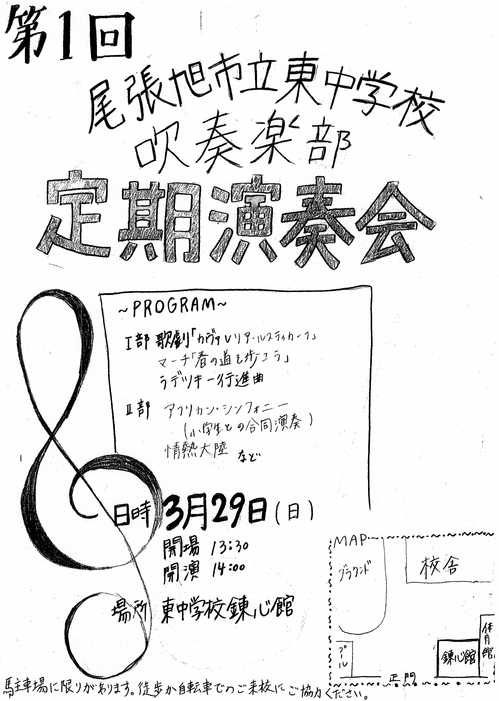 第1回
尾張旭市立東中学校
吹奏楽部
定期演奏会
~PROGRAM~
I部 歌劇「カヴァレリア・ルスティカーナ」
マーチ「春の道を歩こう」
ラデツキー行進曲
II部 アフリカン・シンフォニー
(小学生との合同演奏)
情熱大陸 など
日時 3月29日(日)
開場 13:30
開演 14:00
場所 東中学校錬心館
MAP
グラウンド
校舎
体育館
プール
錬心館
正門
駐車場に限りがあります。徒歩か自転車でのご来校にご協力ください。